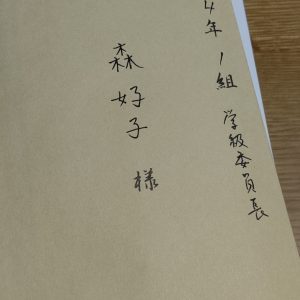 4年1組 学級委員長
森好子様